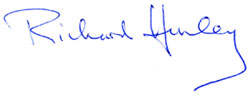 Richard Hunley